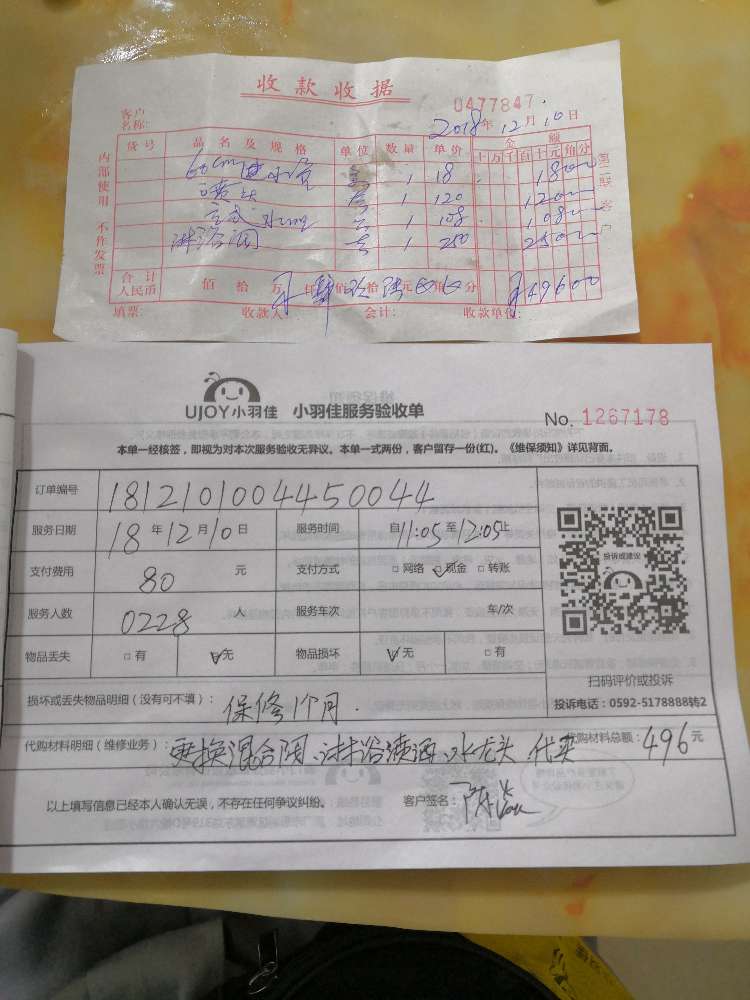 收款收据
0477847
客户
名称:
2018年12月10日
货号 品名及规格 单位 数量 单价 金额
十万千百十元角分
60cm进水管 1 18 1800
喷头 1 120 12000
立式水 1 108 10800
淋浴阀 1 250 25000
合计
人民币
佰 拾 万 仟 肆佰玖拾陆元 角 分 ¥49600
填票: 收款人: 会计: 收款单位:
内部使用 不作发票
第二联 客户
UJOY小羽佳 小羽佳服务验收单
No. 1267178
本单一经核签,即视为对本次服务验收无异议。本单一式两份,客户留存一份(红)。《维保须知》详见背面。
订单编号 1812101004450044
服务日期 18年12月10日 服务时间 自11:05至12:05止
支付费用 80 元 支付方式 □网络 ☑现金 □转账
服务人数 0228 人 服务车次 车/次
物品丢失 □有 ☑无 物品损坏 □有 ☑无
投诉或建议
扫码评价或投诉
投诉电话:0592-5178888转2
损坏或丢失物品明细(没有可不填): 保修1个月.
代购材料明细(维修业务): 更换混合阀、沐浴喷洒、水龙头 代买
代购材料总额: 496元
以上填写信息已经本人确认无误,不存在任何争议纠纷。 客户签名: